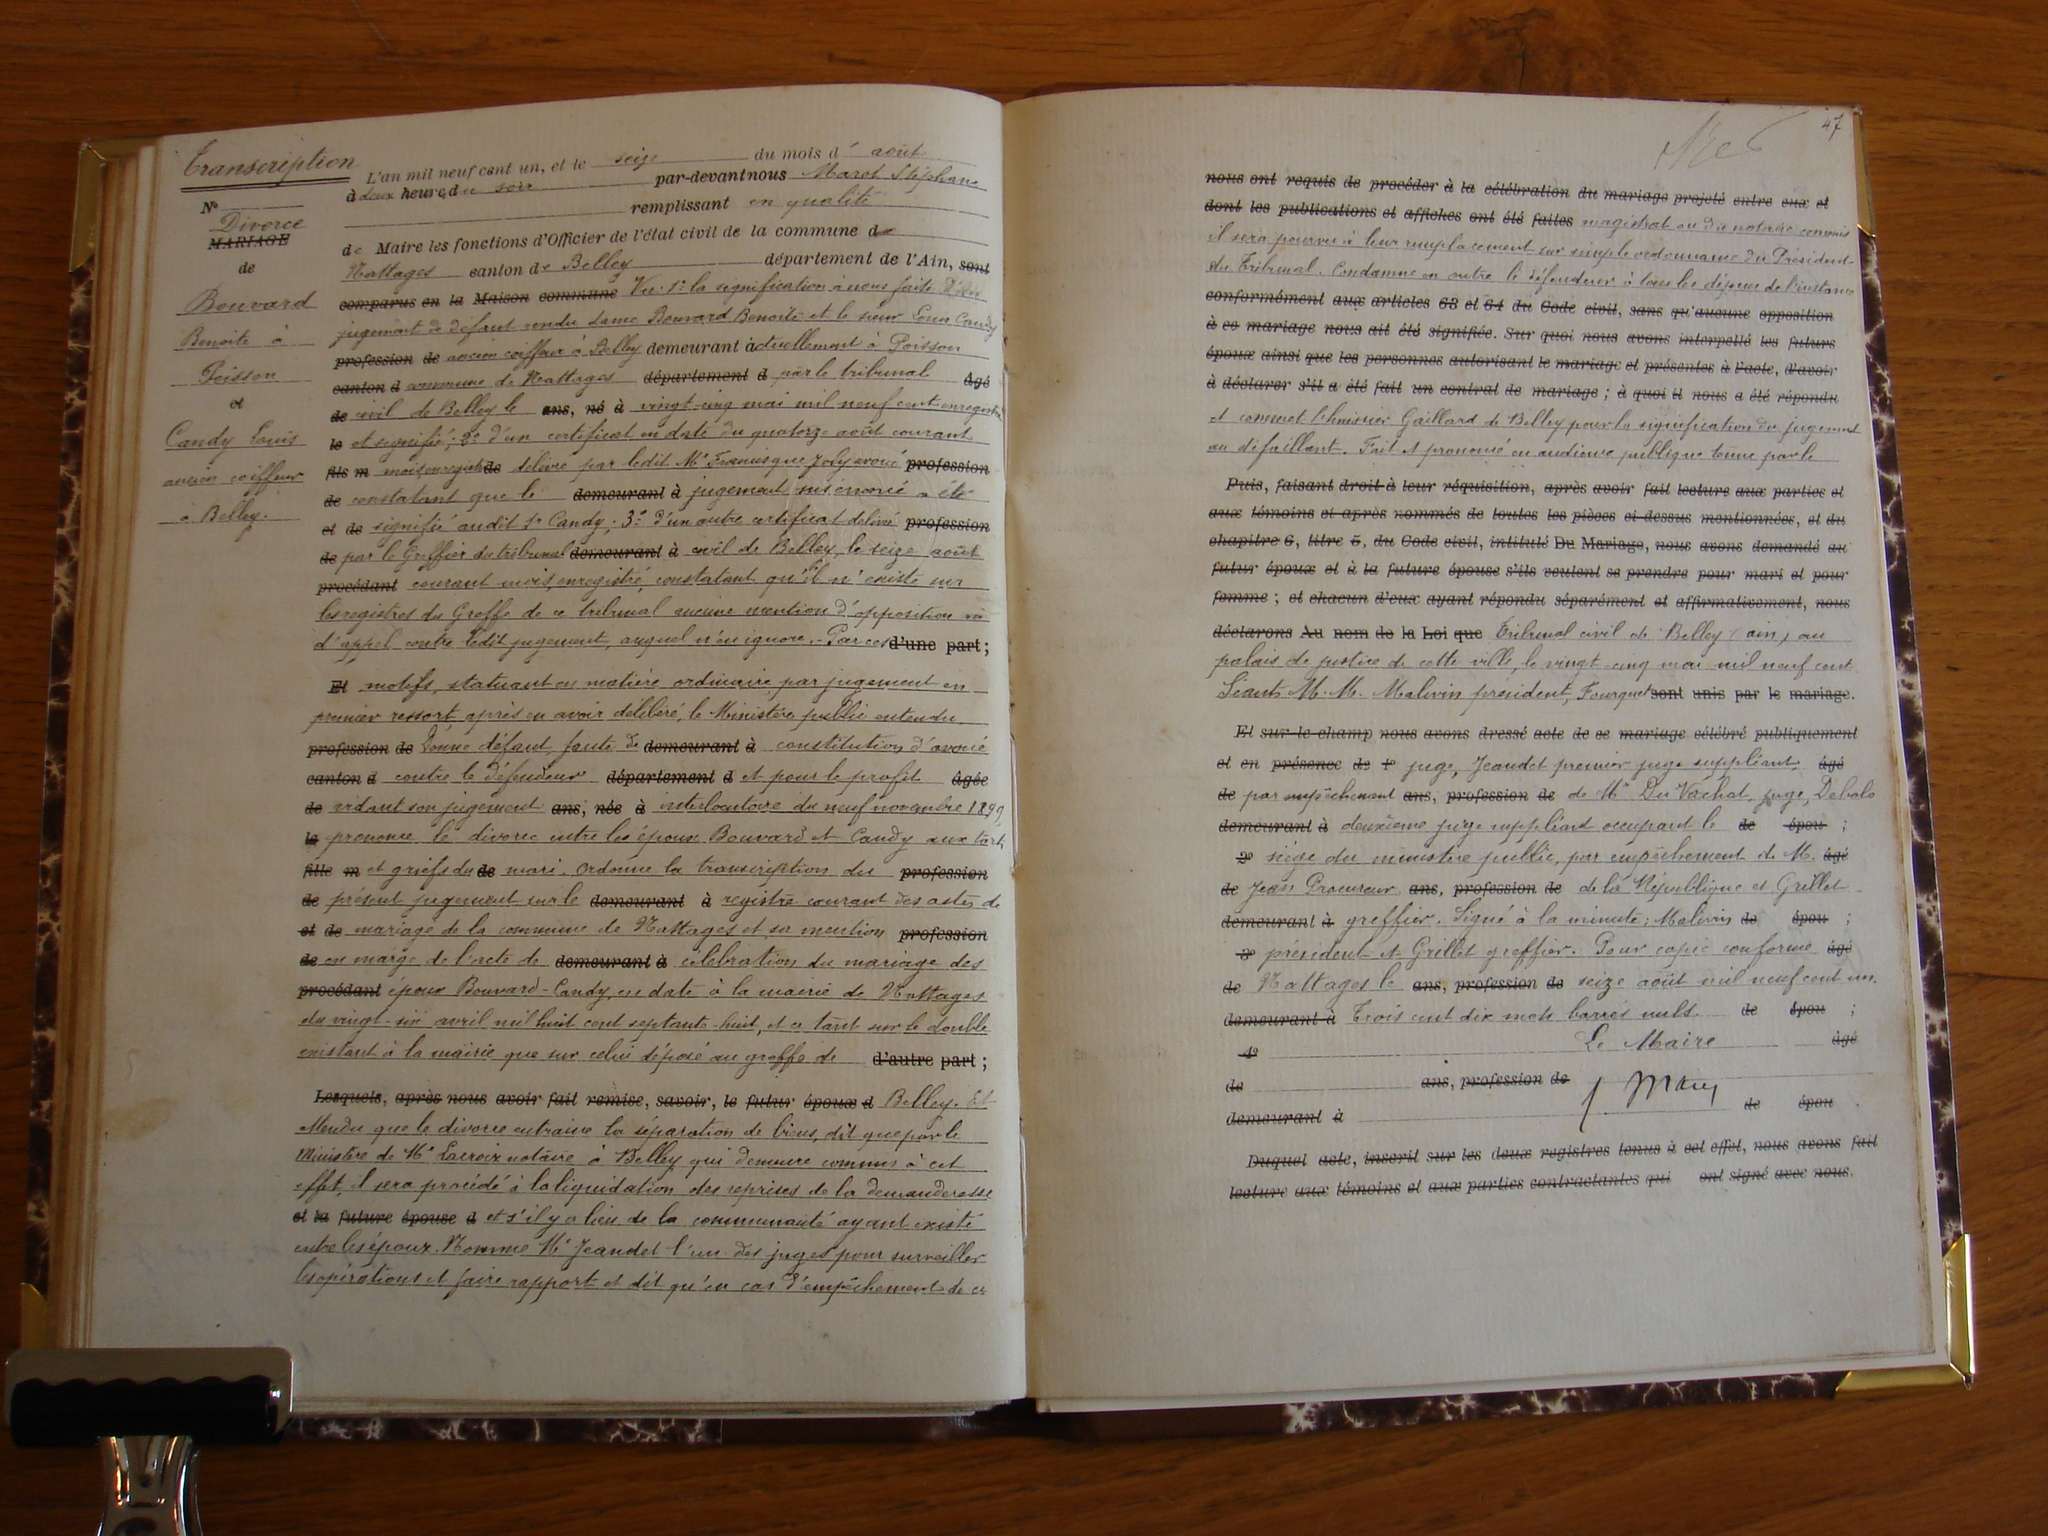 Transcription
L'an mil neuf cent un, et le seize du mois d' août
à deux heure, du soir par-devant nous Maret Stéphane
remplissant en qualité
de Maire les fonctions d'Officier de l'état civil de la commune de
Nattages canton de Belley département de l'Ain, sont
comparus en la Maison commune Vu: 1º la signification à nous faite
jugement de défaut rendu dame Bouvard Benoîte et le sieur Louis Candy
profession de ancien coiffeur à Belley demeurant actuellement à Poisson
canton d commune de Nattages département d par le tribunal âgé
de civil de Belley le ans, né à vingt-cinq mai mil neuf cent enregistré
le et signifié; 2º d'un certificat en date du quatorze août courant
fils m mois, enregistré de délivré par ledit Me Francisque Joly avoué profession
de constatant que le demeurant à jugement susénoncé a été
et de signifié audit Sr Candy; 3º d'un autre certificat délivré profession
de par le Greffier du tribunal demeurant à civil de Belley, le seize août
procédant courant mois, enregistré, constatant qu'il n'existe sur
les registres du Greffe de ce tribunal aucune mention d'opposition ni
d'appel contre ledit jugement, auquel n'en ignore.- Par ces d'une part;
Et motifs, statuant en matière ordinaire par jugement en
premier ressort, après en avoir délibéré, le Ministère public entendu
profession de Donne défaut, faute de demeurant à constitution d'avoué
canton d contre le défendeur département d et pour le profit âgée
de vidant son jugement ans, née à interlocutoire du neuf novembre 1899,
le prononce le divorce entre les époux Bouvard et Candy aux torts
fille m et griefs du de mari. Ordonne la transcription du profession
de présent jugement sur le demeurant à registre courant des actes de
et de mariage de la commune de Nattages et sa mention profession
de en marge de l'acte de demeurant à célébration du mariage des
procédant époux Bouvard-Candy, en date à la mairie de Nattages
du vingt-six avril mil huit cent septante-huit, et ce tant sur le double
existant à la mairie que sur celui déposé au greffe de d'autre part;
Lesquels, après nous avoir fait remise, savoir, le futur époux d Belley. Et
Attendu que le divorce entraine la séparation de biens, dit que par le
Ministère de Me Lacroix notaire à Belley qui demeure commis à cet
effet, il sera procédé à la liquidation des reprises de la demanderesse
et la future épouse d et s'il y a lieu de la communauté ayant existé
entre les époux. Nomme Mr Jeandet l'un des juges pour surveiller
les opérations et faire rapport et dit qu'en cas d'empêchement de ce
Nº
Divorce
MARIAGE
de
Bouvard
Benoite à
Poisson
et
Candy Louis
ancien coiffeur
à Belley.
47
nous ont requis de procéder à la célébration du mariage projeté entre eux et
dont les publications et affiches ont été faites magistrat ou du notaire commis
il sera pourvu à leur remplacement sur simple ordonnance du Président
du Tribunal. Condamne en outre le défendeur à tous les dépens de l'instance
conformément aux articles 63 et 64 du Code civil, sans qu'aucune opposition
à ce mariage nous ait été signifiée. Sur quoi nous avons interpellé les futurs
époux ainsi que les personnes autorisant le mariage et présentes à l'acte, d'avoir
à déclarer s'il a été fait un contrat de mariage; à quoi il nous a été répondu
et commet l'huissier Gaillard de Belley pour la signification du jugement
au défaillant. Fait et prononcé en audience publique tenue par le
Puis, faisant droit à leur réquisition, après avoir fait lecture aux parties et
aux témoins et après nommés de toutes les pièces ci-dessus mentionnées, et du
chapitre 6, titre 5, du Code civil, intitulé Du Mariage, nous avons demandé au
futur époux et à la future épouse s'ils veulent se prendre pour mari et pour
femme; et chacun d'eux ayant répondu séparément et affirmativement, nous
déclarons Au nom de la Loi que Tribunal civil de Belley (ain) au
palais de justice de cette ville, le vingt cinq mai mil neuf cent
Séants M.M. Malivin président, Fourquet sont unis par le mariage.
Et sur-le-champ nous avons dressé acte de ce mariage célébré publiquement
et en présence de 1º juge, Jeandet premier juge suppléant, âgé
de par empêchement ans, profession de de Mr Du Vachat, juge, Debalo
demeurant à deuxième juge suppléant occupant le de épou ;
2º siège du ministère public, par empêchement de M. âgé
de Jean Procureur ans, profession de de la République et Grillet
demeurant à greffier. Signé à la minute: Malivin de épou ;
3º président et Grillet greffier. Pour copie conforme âgé
de Nattages le ans, profession de seize août mil neuf cent un.
demeurant à Trois cent dix mots barrés nuls de épou ;
4º Le Maire âgé
de ans, profession de
demeurant à de épou
Duquel acte, inscrit sur les deux registres tenus à cet effet, nous avons fait
lecture aux témoins et aux parties contractantes qui ont signé avec nous.